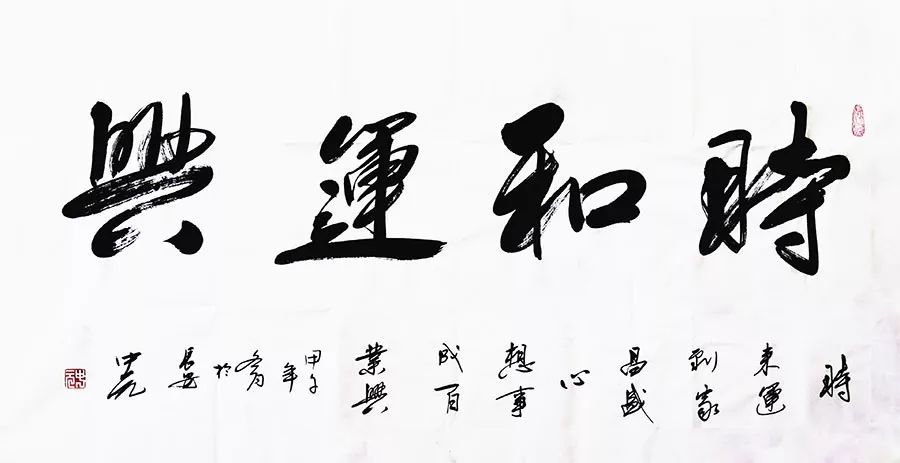 時和運興
時
來運
到家
昌盛
心
想事
成百
業興
甲午
年
於
長安